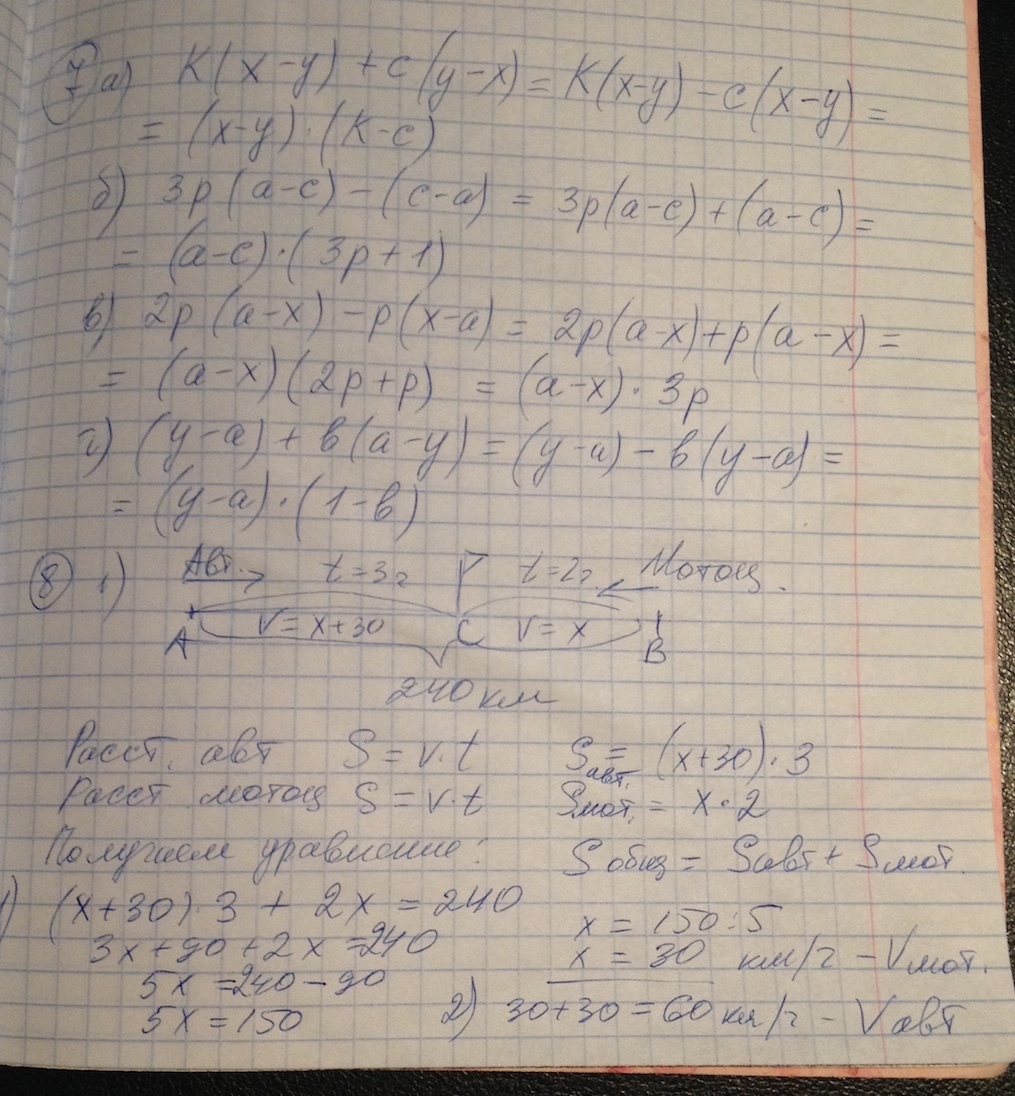 7 а) K(x-y)+c(y-x)=K(x-y)-c(x-y)=
= (x-y)·(K-c)
б) 3p(a-c)-(c-a) = 3p(a-c)+(a-c)=
= (a-c)·(3p+1)
в) 2p(a-x)-p(x-a)= 2p(a-x)+p(a-x)=
= (a-x)(2p+p) = (a-x)·3p
г) (y-a)+в(a-y)=(y-a)-в(y-a)=
= (y-a)·(1-в)
8 1) Авт. t=3ч t=2ч. Мотоц.
V=x+30 C V=x
A B
240 км
Расст. авт S=v·t Sавт.= (x+30)·3
Расст мотоц S=v·t Sмот.= x·2
Получаем уравнение: Sобщ= Sавт+Sмот.
1) (x+30)·3 + 2x =240
3x+90+2x=240
5x=240-90
5x=150
x=150:5
x = 30 км/ч - Vмот.
2) 30+30=60км/ч - Vавт